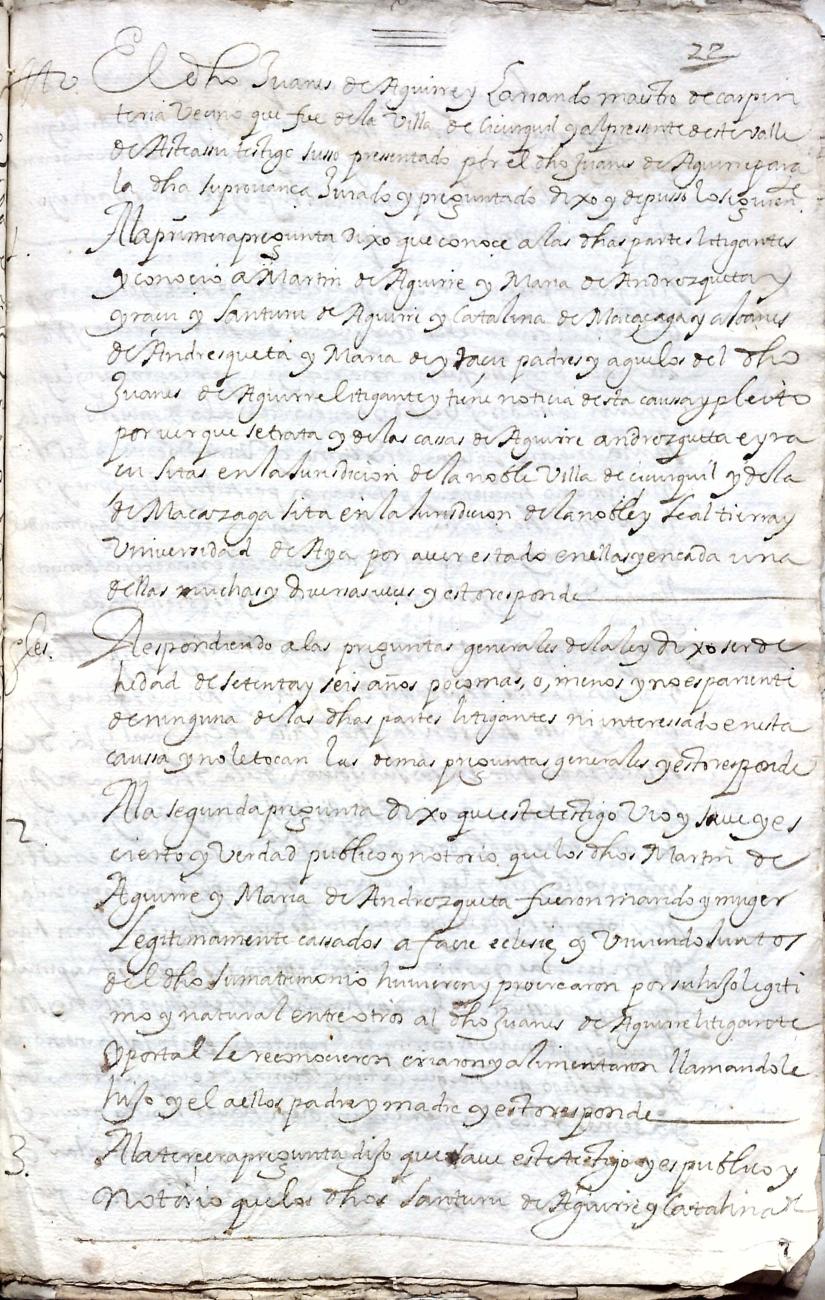 22
El dho Juanes de Aguirre y Larrando maestro de carpin
teria Vecino que fue de la Villa de Cicurquil y al presente deste valle
de Asteassu testigo susso presentado por el dho Juanes de Aguirre para
la dha su provanca Jurado y preguntado dixo y depusso lo siguien te
1. A la primera pregunta dixo que conoce a las dhas partes litigantes
y conocio a Martin de Aguirre y Maria de Androzqueta y
yracu y Santuru de Aguirre y Catalina de Macaçaga y a Joanes
de Andresqueta y Maria de yracu padres y aguelos del dho
Juanes de Aguirre litigante y tiene noticia desta caussa y pleito
por ver que se trata y de las cassas de Aguirre androzqueta e yra
cu sitas en la Jurisdicion de la noble Villa de cicurquil y de la
de Macazaga sita en la Jurisdicion de la noble y leal tierra y
Universidad de Aya por aver estado en ellas y en cada una
dellas muchas y diversas veces y esto responde
gles. Respondiendo a las preguntas generales de la ley dixo ser de
hedad de setenta y seis años poco mas, o, menos y no es pariente
de ninguna de las dhas partes litigantes ni interessado en esta
caussa y no le tocan las demas preguntas generales y esto responde
2. A la segunda pregunta dixo que este testigo Vio y save y es
cierto y Verdad publico y notorio que los dhos Martin de
Aguirre y Maria de Androzqueta fueron marido y muger
Legitimamente cassados a facie eclesie y Viviendo Juntos
del dho su matrimonio huvieron y procrearon por su hijo legiti
mo y natural entre otros al dho Juanes de Aguirre litigante
y por tal le reconocieron criaron y alimentaron llamandole
hijo y el a ellos padre y madre y esto responde
3. A la tercera pregunta dijo que save este testigo y es publico y
notorio que los dhos Santuru de Aguirre y Catalina de